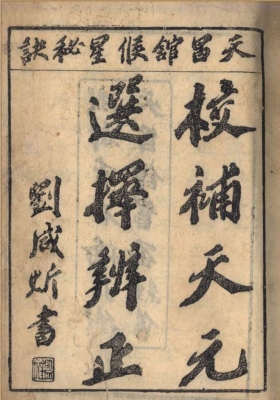 天星選擇秘訣
校補天元
選擇辨正
劉咸炘書